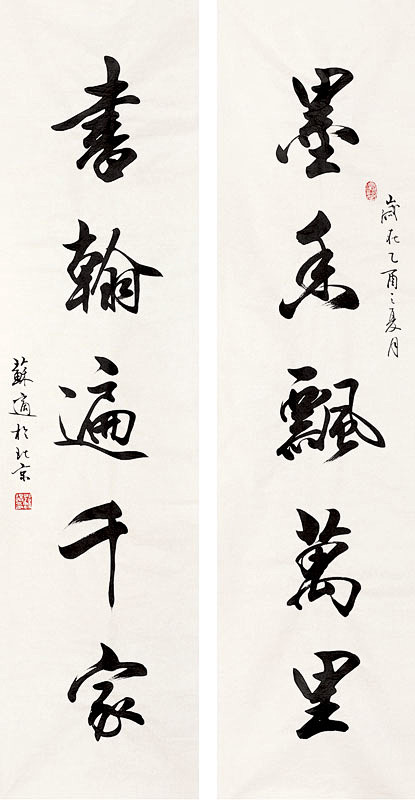 墨香飄萬里
歲在乙酉之夏月
書翰遍千家
蘇適於北京